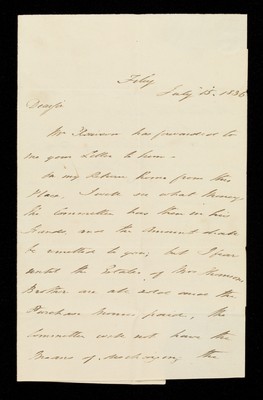 Filey
July 15. 1836
Dear Sir
Mr has forwarded to
me your Letter to him —
In my return Home from this
Place, I will see what money
the Committee has then in his
hands and the Amount shall
be remitted to you; but I fear
until the Estates of Mrs
Brother are all sold and the
Purchase money paid, the
Committee will not have the
Means of discharging the